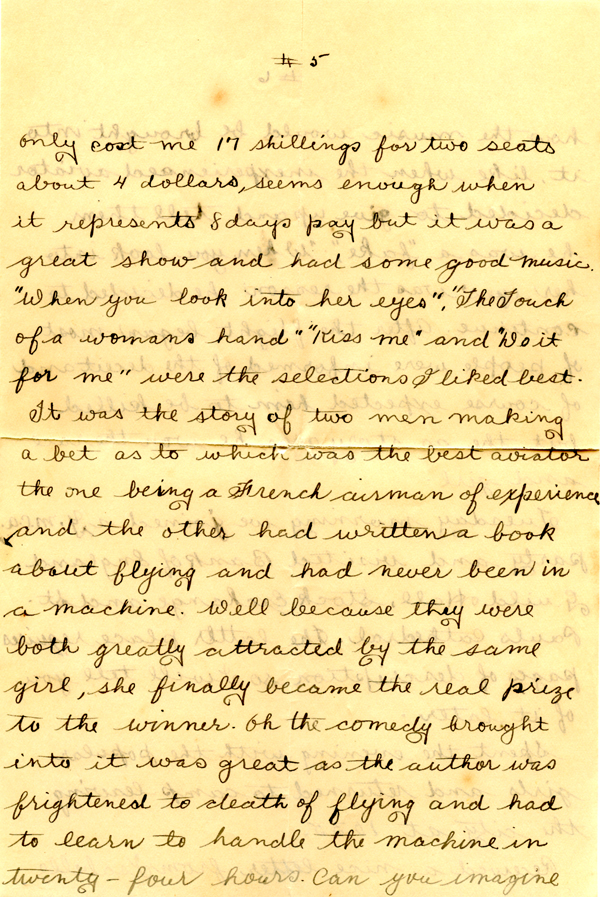 # 5
only cost me 17 shillings for two seats
about 4 dollars, seems enough when
it represents 8 days pay but it was a
great show and had some good music.
"When you look into her eyes", "The Touch
of a womans hand" "Kiss me" and "Do it
for me" were the selections I liked best.
It was the story of two men making
a bet as to which was the best aviator
the one being a French airman of experience
and the other had written a book
about flying and had never been in
a machine. Well because they were
both greatly attracted by the same
girl, she finally became the real prize
to the winner. Oh the comedy brought
into it was great as the author was
frightened to death of flying and had
to learn to handle the machine in
twenty-four hours. Can you imagine